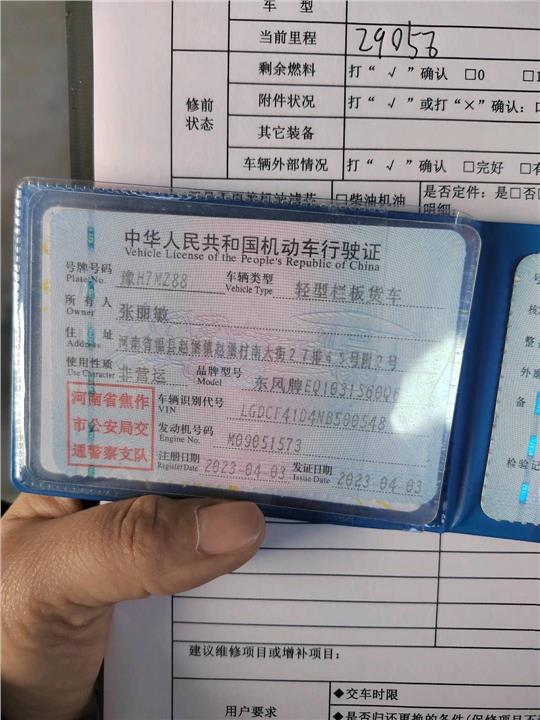 车 型
当前里程 29056
修前状态
剩余燃料 打“ √ ”确认 □0
附件状况 打“ √ ”或打“×”确认：
其它装备
车辆外部情况 打“ √ ”确认 □完好
□柴油机油 是否定件：是□否
明细
中华人民共和国机动车行驶证
Vehicle License of the People's Republic of China
号牌号码 豫H7MZ88 车辆类型 轻型栏板货车
Plate No. Vehicle Type
所有人 张丽敏
Owner
住 址 河南省温县赵堡镇赵堡村南大街27排45号附2号
Address
使用性质 非营运 品牌型号 东风牌EQ1031S60Q6
Use Character Model
河南省焦作
市公安局交
通警察支队
车辆识别代号 LGDCF41D4NB500548
VIN
发动机号码 M09051573
Engine No.
注册日期 2023-04-03 发证日期 2023-04-03
Register Date Issue Date
号
核
整
外
备
检验记
建议维修项目或增补项目：
用户要求
◆交车时限
◆是否归还更换的条件